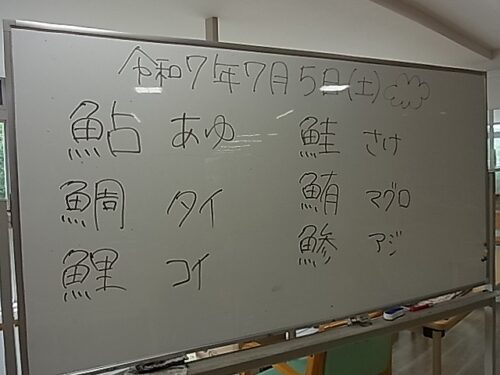 令和7年7月5日(土)
鮎 あゆ 鮭 さけ
鯛 タイ 鮪 マグロ
鯉 コイ 鯵 アジ